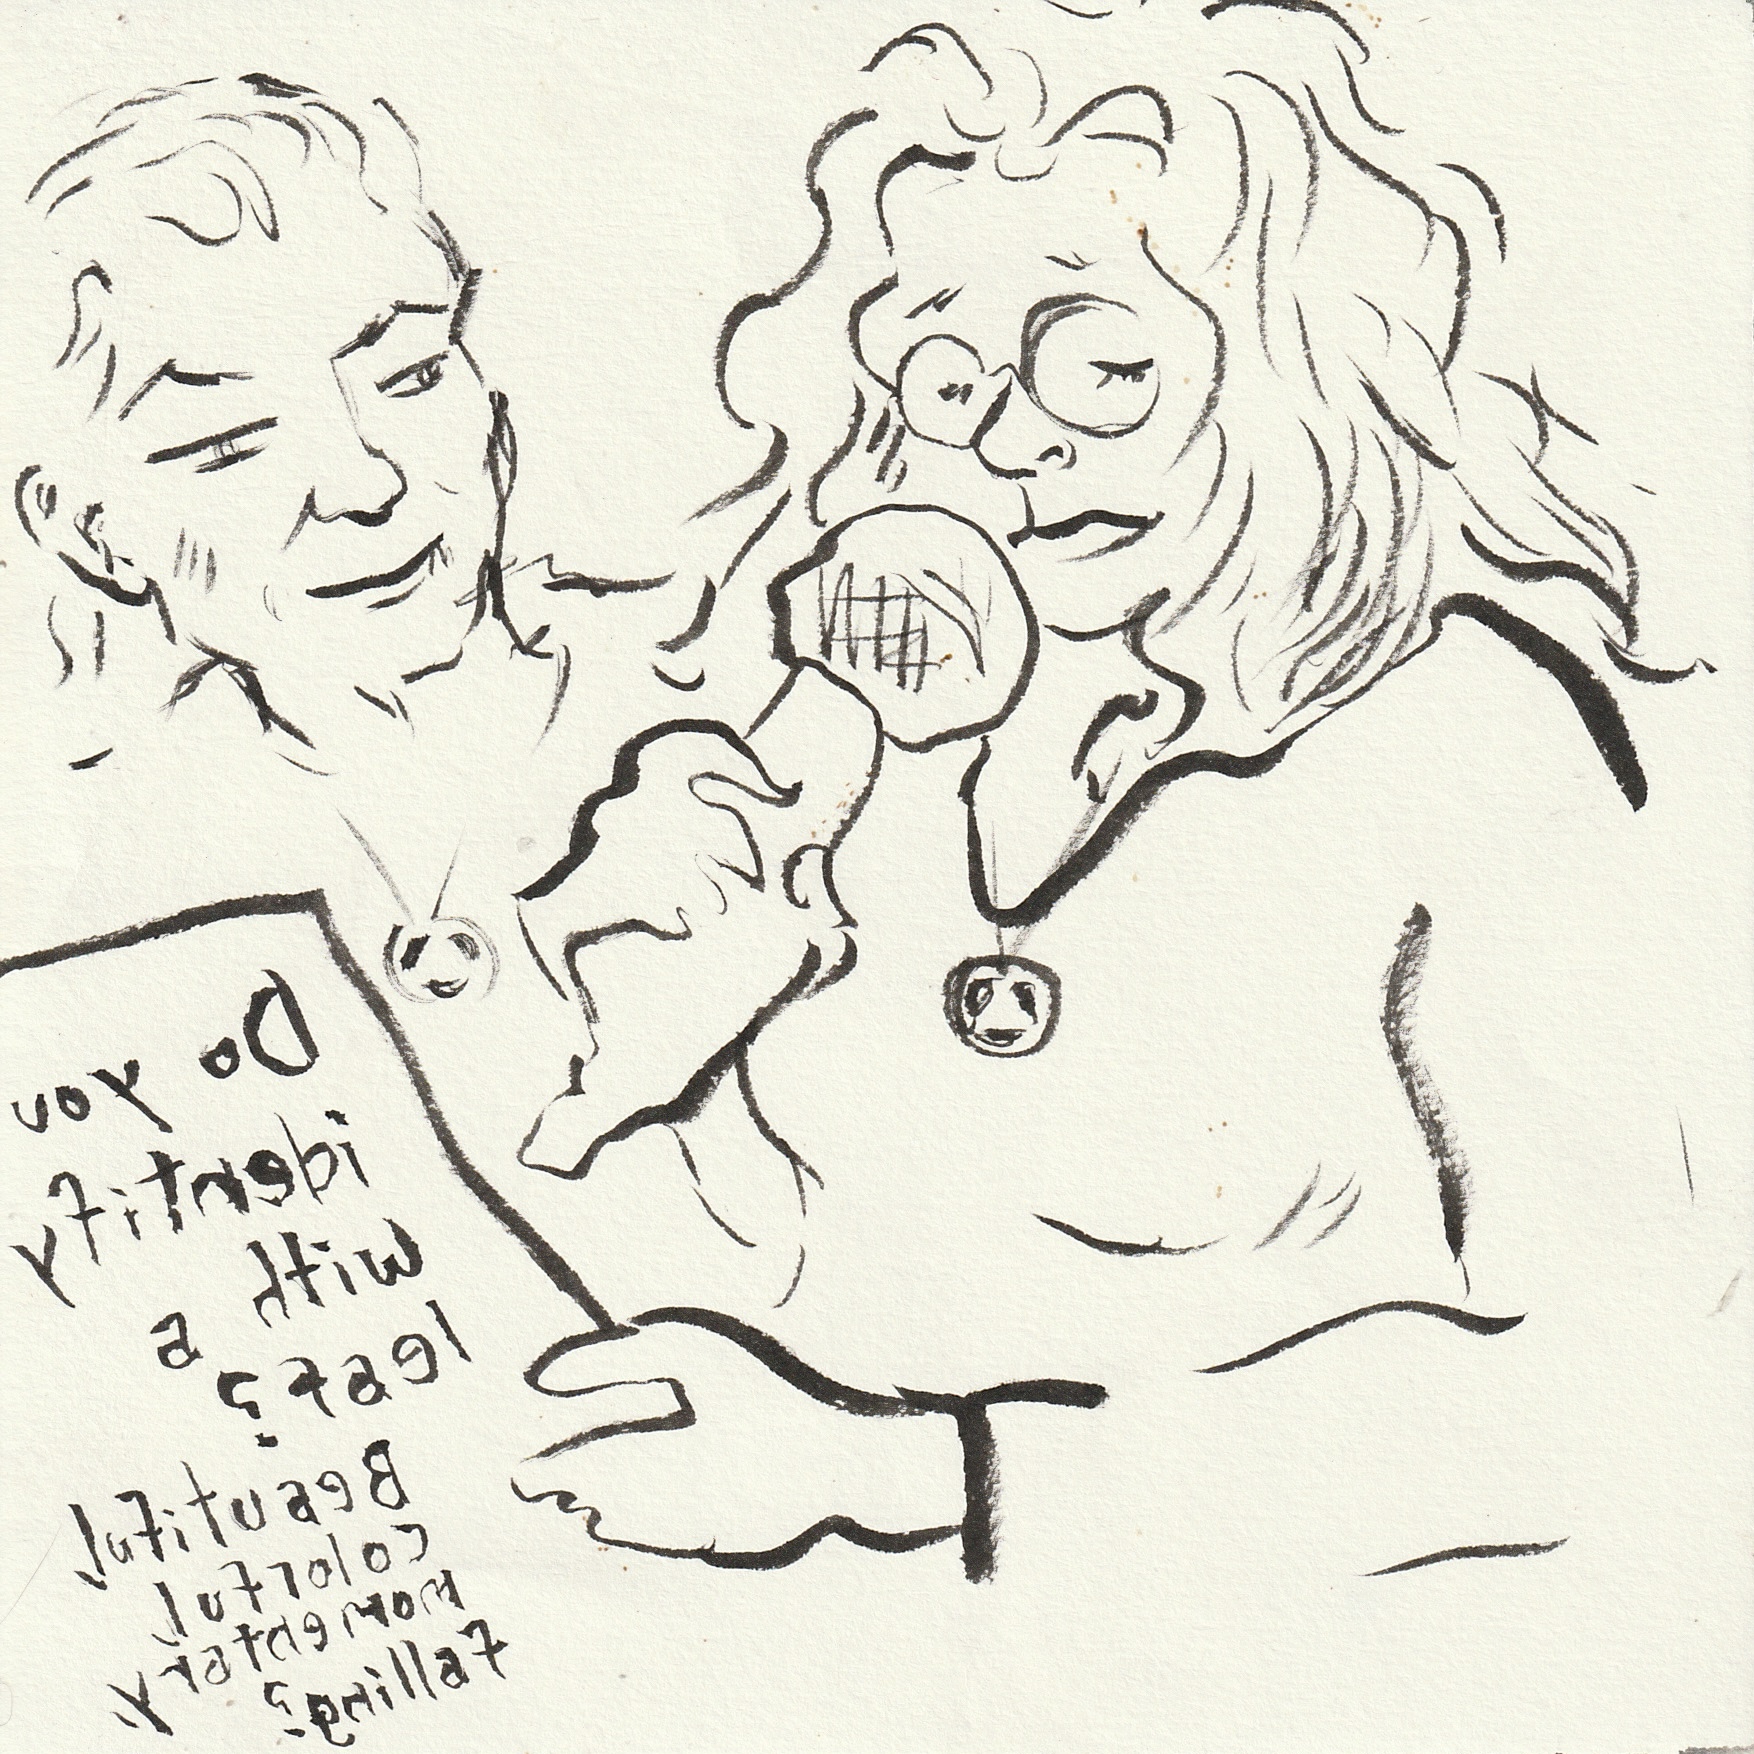 Do you
identify
with a
leaf?
Beautiful
colorful
momentary
falling?